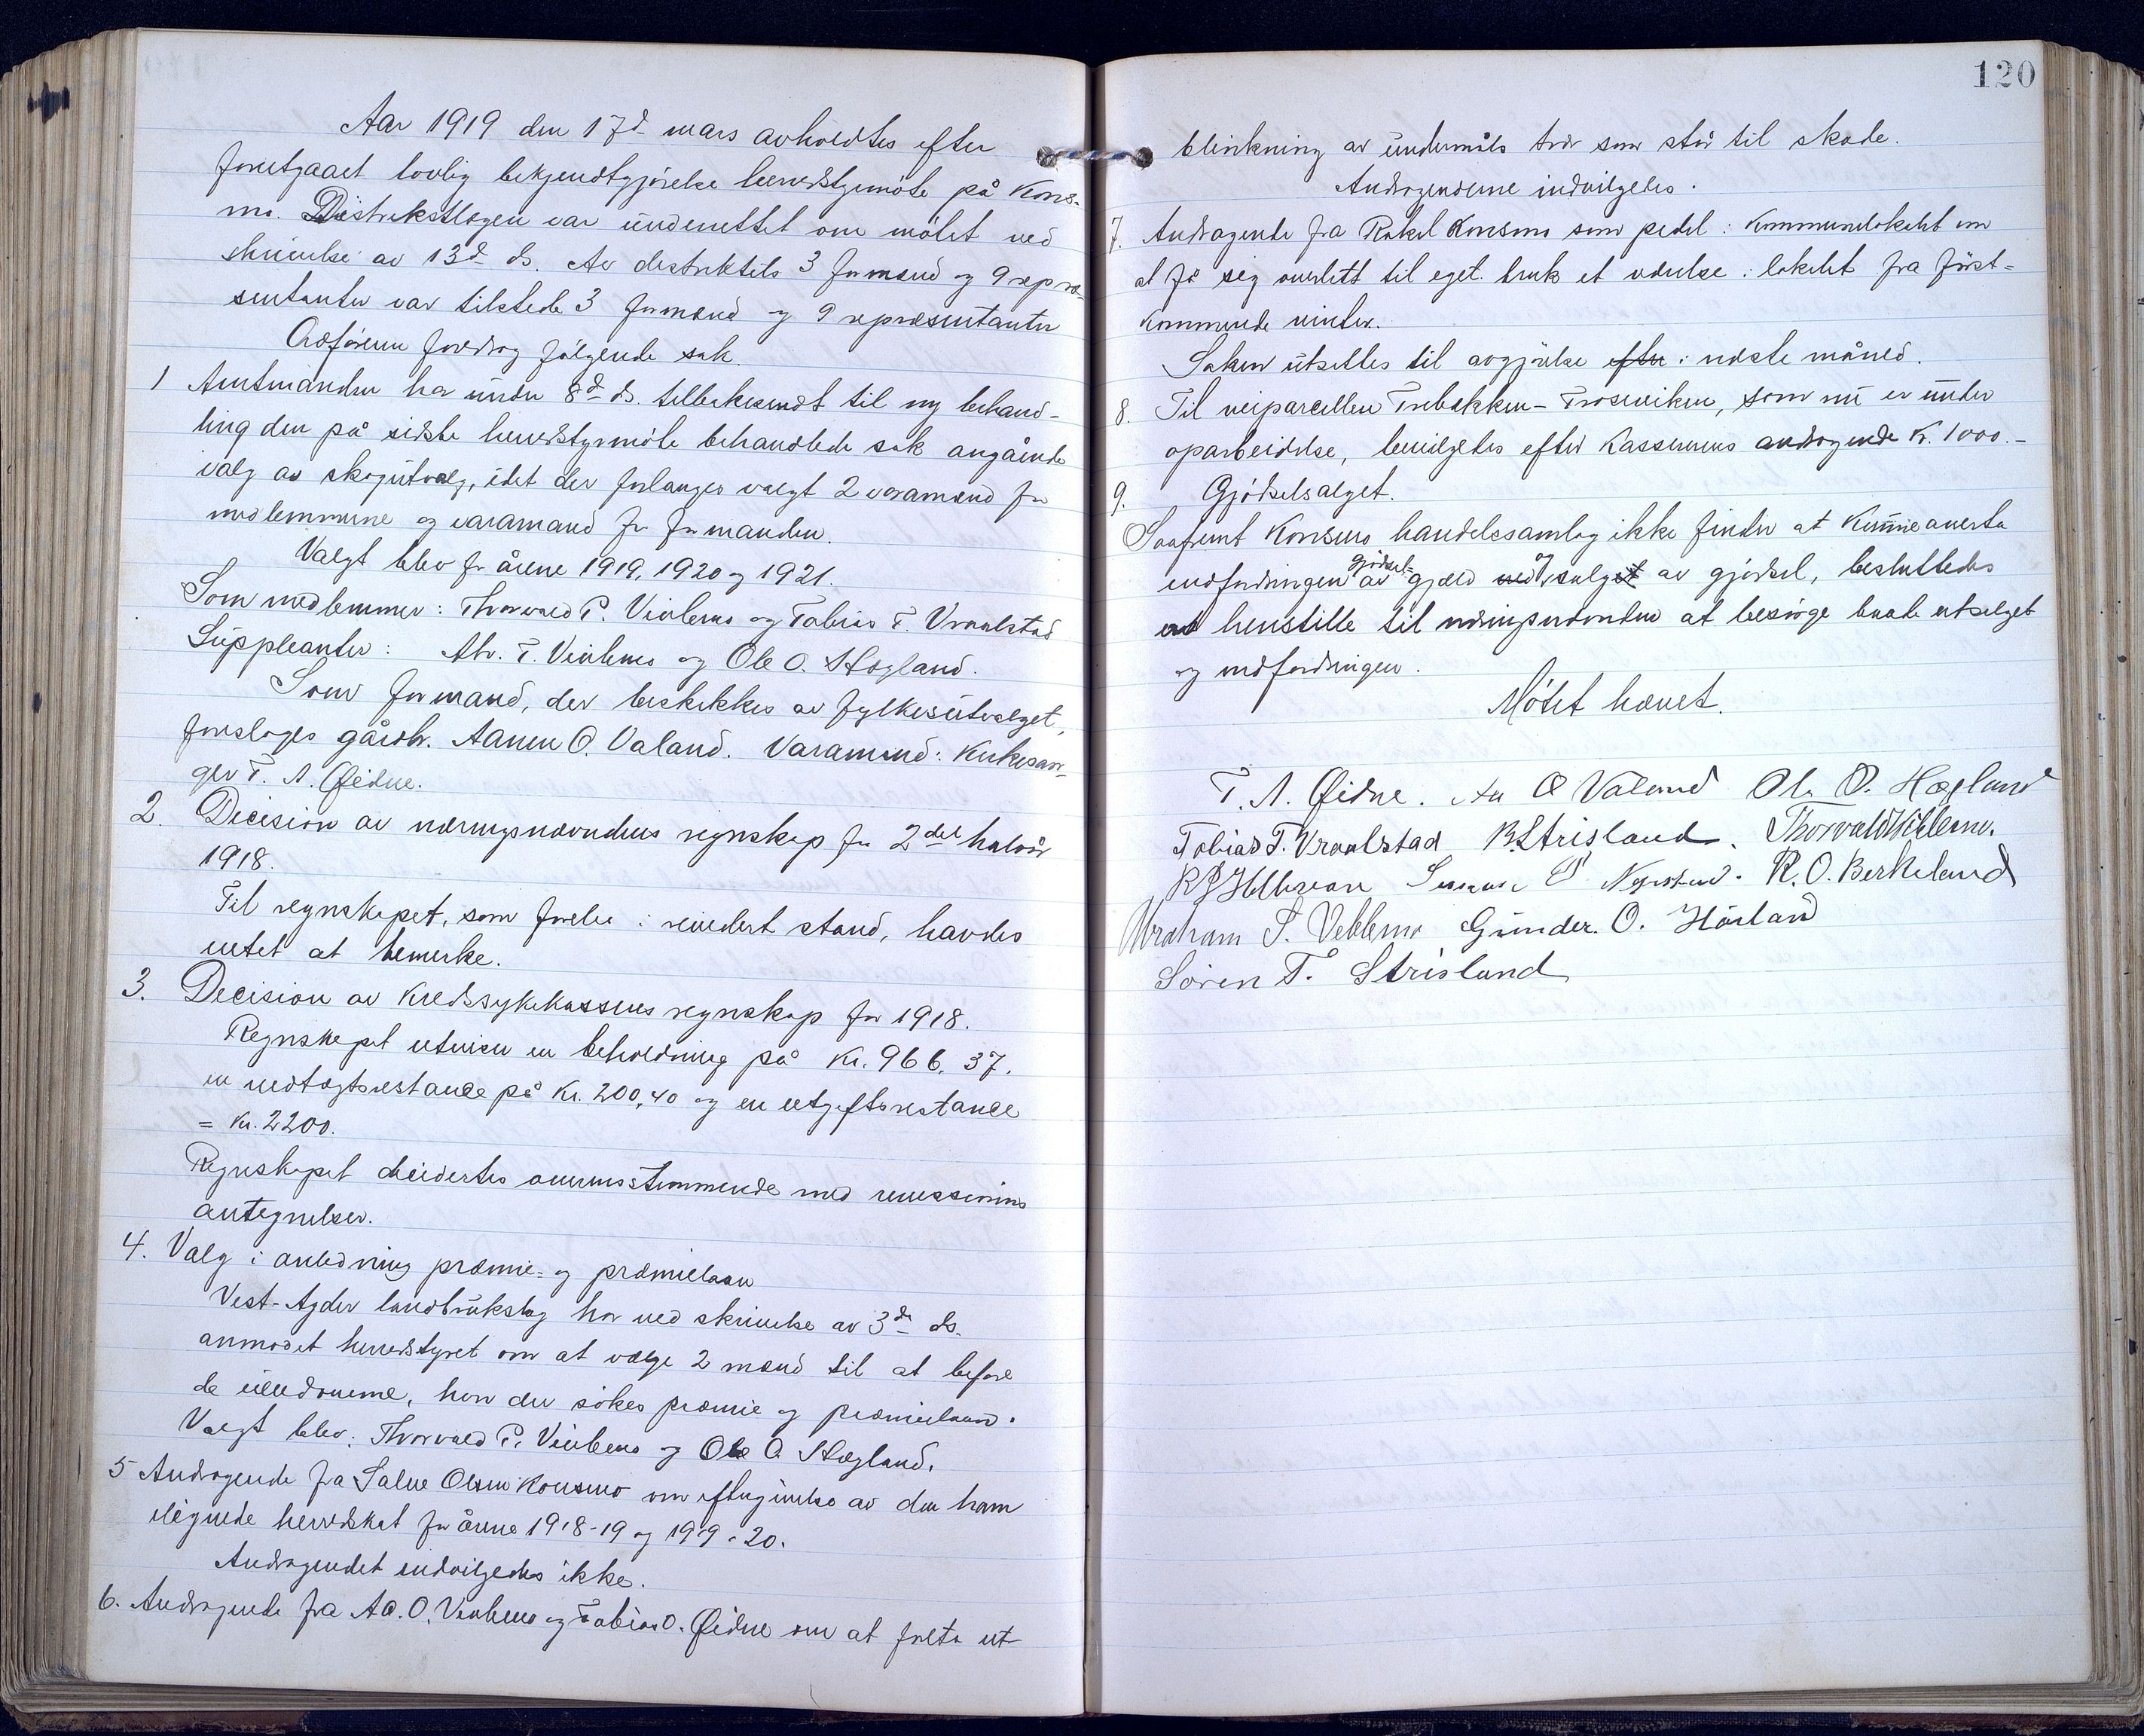 Aar 1919 den 17d mars avholdtes efter
forutgaaet lovlig bekjendtgjörelse herredstyrmöte på Kons-
mo. Distrikslægen var underrettet om mötet ved
skrivelse av 13d ds. Av distriktets 3 formænd og 9 repræ-
sentanter var tilstede 3 formænd og 9 repræsentanter
Ordföreren foredrog fölgende sak.
1 Amtmanden har under 8d ds. tilbakesendt til ny behand-
ling den på sidste herredstyrmöte behandlede sak angående
valg av skogutvalg, idet der forlanges valgt 2 varamænd for
medlemmerne og varamand for formanden.
Valgt blev for årene 1919, 1920 og 1921.
Som medlemmer: Thorvald P. Viblemo og Tobias T. Vraalstad
Suppleanter: Abr. T. Viblemo og Ole O. Høgland.
Som formand, der beskikkes av fylkesutvalget,
foreslages gårdbr. Aanen O. Valand. Varamand: Kirkesan-
ger T. A. Øidne.
2. Decision av næringsnævndens regnskap for 2det halvår
1918.
Til regnskapet, som forelå i revidert stand, havdes
intet at bemerke.
3. Decision av Kredssykekassens regnskap for 1918.
Regnskapet utviser en beholdning på Kr. 966,37.
en indtægtsrestance på Kr. 200,40 og en utgiftsrestance
= Kr. 2200.
Regnskapet decidertes overensstemmende med revissorens
antegnelser.
4. Valg i anledning præmie- og præmielaan
Vest-Agder landbrukslag har ved skrivelse av 3d ds.
anmodet herredstyret om at vælge 2 mænd til at befare
de eiendomme, hvor der sökes præmie og præmielaan.
Valgt blev: Thorvald P. Viblemo og Ole O Høgland.
5 Andragende fra Salve Olsen Konsmo om eftergivelse av den ham
ilignede herredskat for årene 1918-19 og 1919-20.
Andragendet indvilgedes ikke.
6. Andragende fra Aa. O. Viblemo og Tobias O. Øidne om at foreta ut-
120
blinkning av undermåls trær som står til skade.
Andragenderne indvilgedes.
7. Andragende fra Rakel Konsmo som pedel i Kommunelokalet om
at få sig overlatt til eget bruk et værelse i lokalet fra först-
kommende vinter.
Saken utsettes til avgjörelse efter i næste måned.
8. Til veiparcellen Trebakken-Troseviken, som nu er under
oparbeidelse, bevilgedes efter Kassererens andragende Kr. 1000.-
9. Gjödselsalget.
Saafremt Konsmo handelssamlag ikke finder at Kunne overta
indfordringen av gjödsel-gjæld ved og salget av gjödsel, besluttedes
at henstille til næringsnævnden at besörge baade utsalget
og indfordringen.
Mötet hævet.
T. A. Øidne. Aa O Valand Ole O. Høgland
Tobias T. Vraalstad B. Strisland. Thorvald Viblemo.
R. O. Berkeland
Abraham T. Veblemo Gunder. O. Hårland
Sören T. Strisland